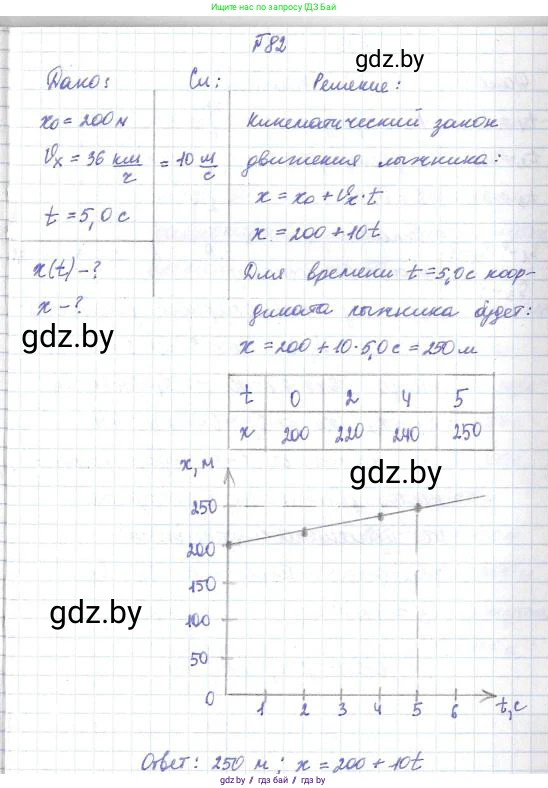 Ищите нас по запросу ГДЗ БАЙ
№82
gdz.by
Дано: Си: Решение:
x₀ = 200 м
Кинематический закон
Vx = 36 км/ч = 10 м/с
движения лыжника:
x = x₀ + Vx·t
t = 5,0 с
x = 200 + 10t
x(t) - ?
Для времени t = 5,0 с коор-
x - ?
дината лыжника будет:
gdz.by
x = 200 + 10·5,0 с = 250 м
t 0 2 4 5
x 200 220 240 250
x, м
gdz.by
250
200
150
gdz.by
100
50
0
1 2 3 4 5 6 t, с
Ответ: 250 м; x = 200 + 10t
gdz.by / гдз бай / гдз.бел